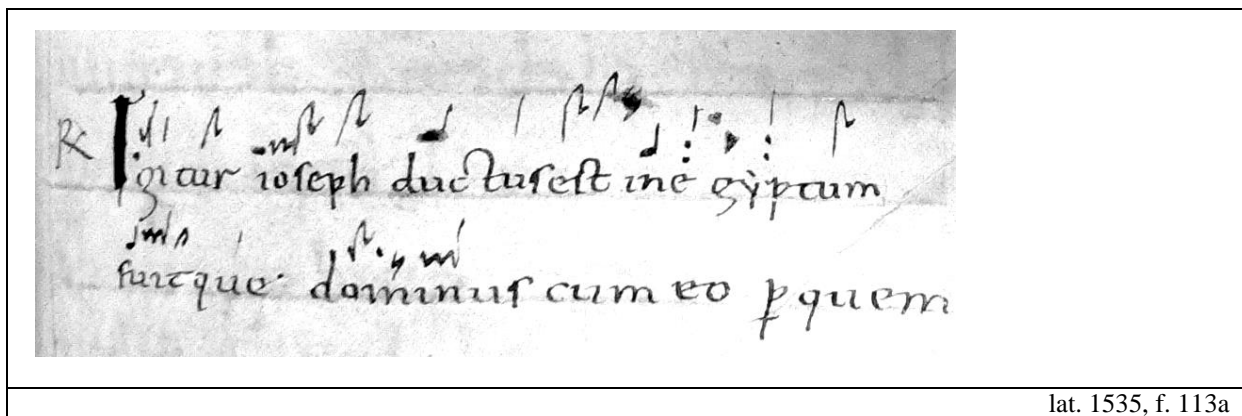 ℟ Igitur ioseph ductus est in egyptum
fuitque dominus cum eo p quem
lat. 1535, f. 113a